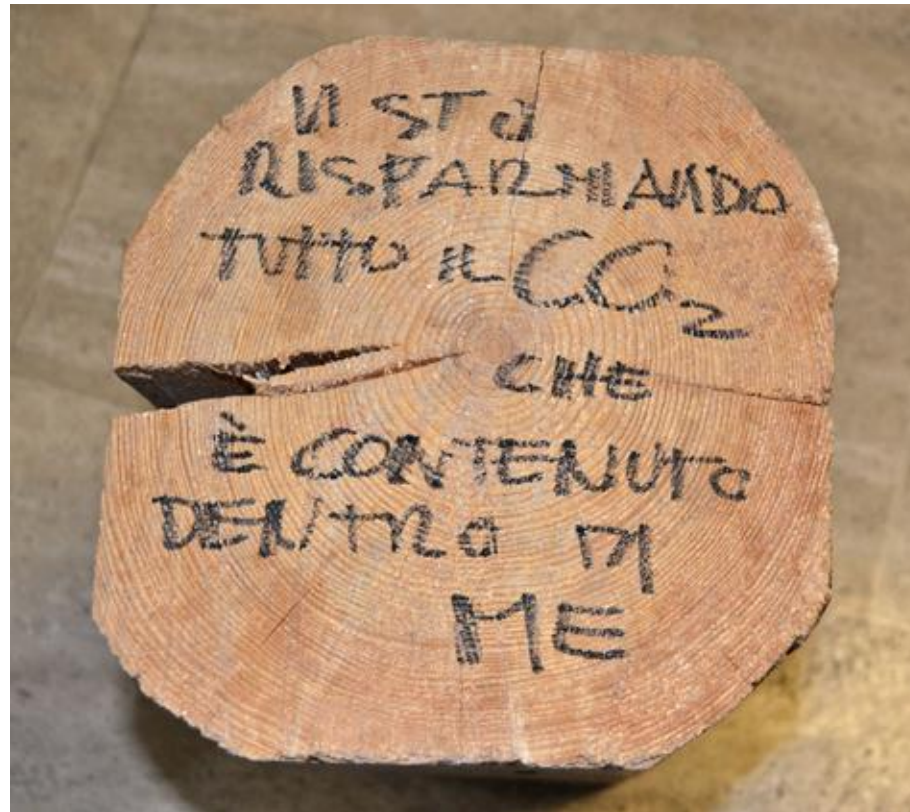 VI STO
RISPARMIANDO
TUTTO IL CO₂
CHE
È CONTENUTO
DENTRO DI
ME